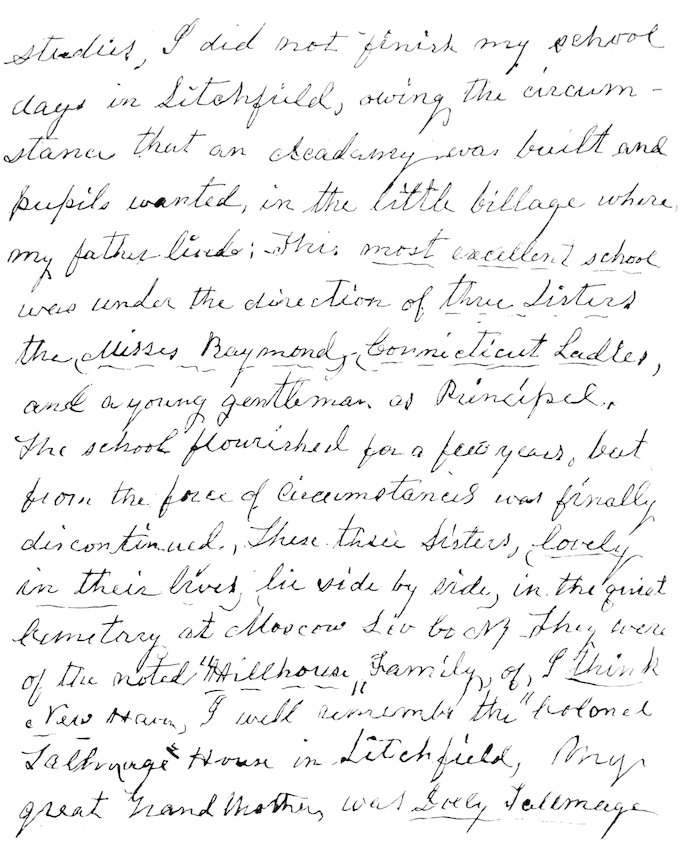 studies, I did not finish my school
days in Litchfield, owing the circum-
stance that an Academy was built and
pupils wanted, in the little billage where,
my father lived; This most excellent school
was under the direction of three Sisters
the Misses Raymond, Connecticut Ladies,
and a young gentleman as Principel.
The school flourished for a few years, but
from the force of Circumstances was finally
discontinued., These three Sisters, lovely
in their lives, lie side by side, in the quiet
Cemetary at Moscow Liv Co NY They were
of the noted "Hillhouse" Family, of, I think
New Haven, I well remember the "Colonel
Tallmage" House in Litchfield, My
great Grand Mother, was Tallmage